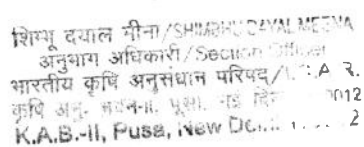 शिम्भू दयाल मीना/SHIMBHU DAYAL MEENA
अनुभाग अधिकारी/Section Officer
भारतीय कृषि अनुसंधान परिषद/I.C.A.R.
कृषि अनु. भवन-II, पूसा, नई दि 0012
K.A.B.-II, Pusa, New De 2